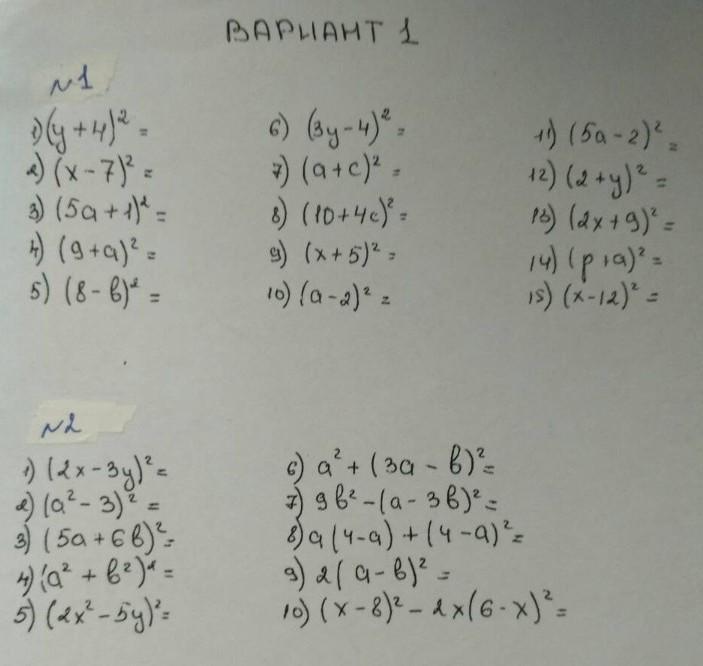 ВАРИАНТ 1
№1
1) (y + 4)² =
2) (x - 7)² =
3) (5a + 1)² =
4) (9 + a)² =
5) (8 - b)² =
6) (3y - 4)² =
7) (a + c)² =
8) (10 + 4c)² =
9) (x + 5)² =
10) (a - 2)² =
11) (5a - 2)² =
12) (2 + y)² =
13) (2x + 9)² =
14) (p + a)² =
15) (x - 12)² =
№2
1) (2x - 3y)² =
2) (a² - 3)² =
3) (5a + 6b)² =
4) (a² + b²)² =
5) (2x² - 5y)² =
6) a² + (3a - b)² =
7) 9b² - (a - 3b)² =
8) a(4 - a) + (4 - a)² =
9) 2(a - b)² =
10) (x - 8)² - 2x(6 - x)² =